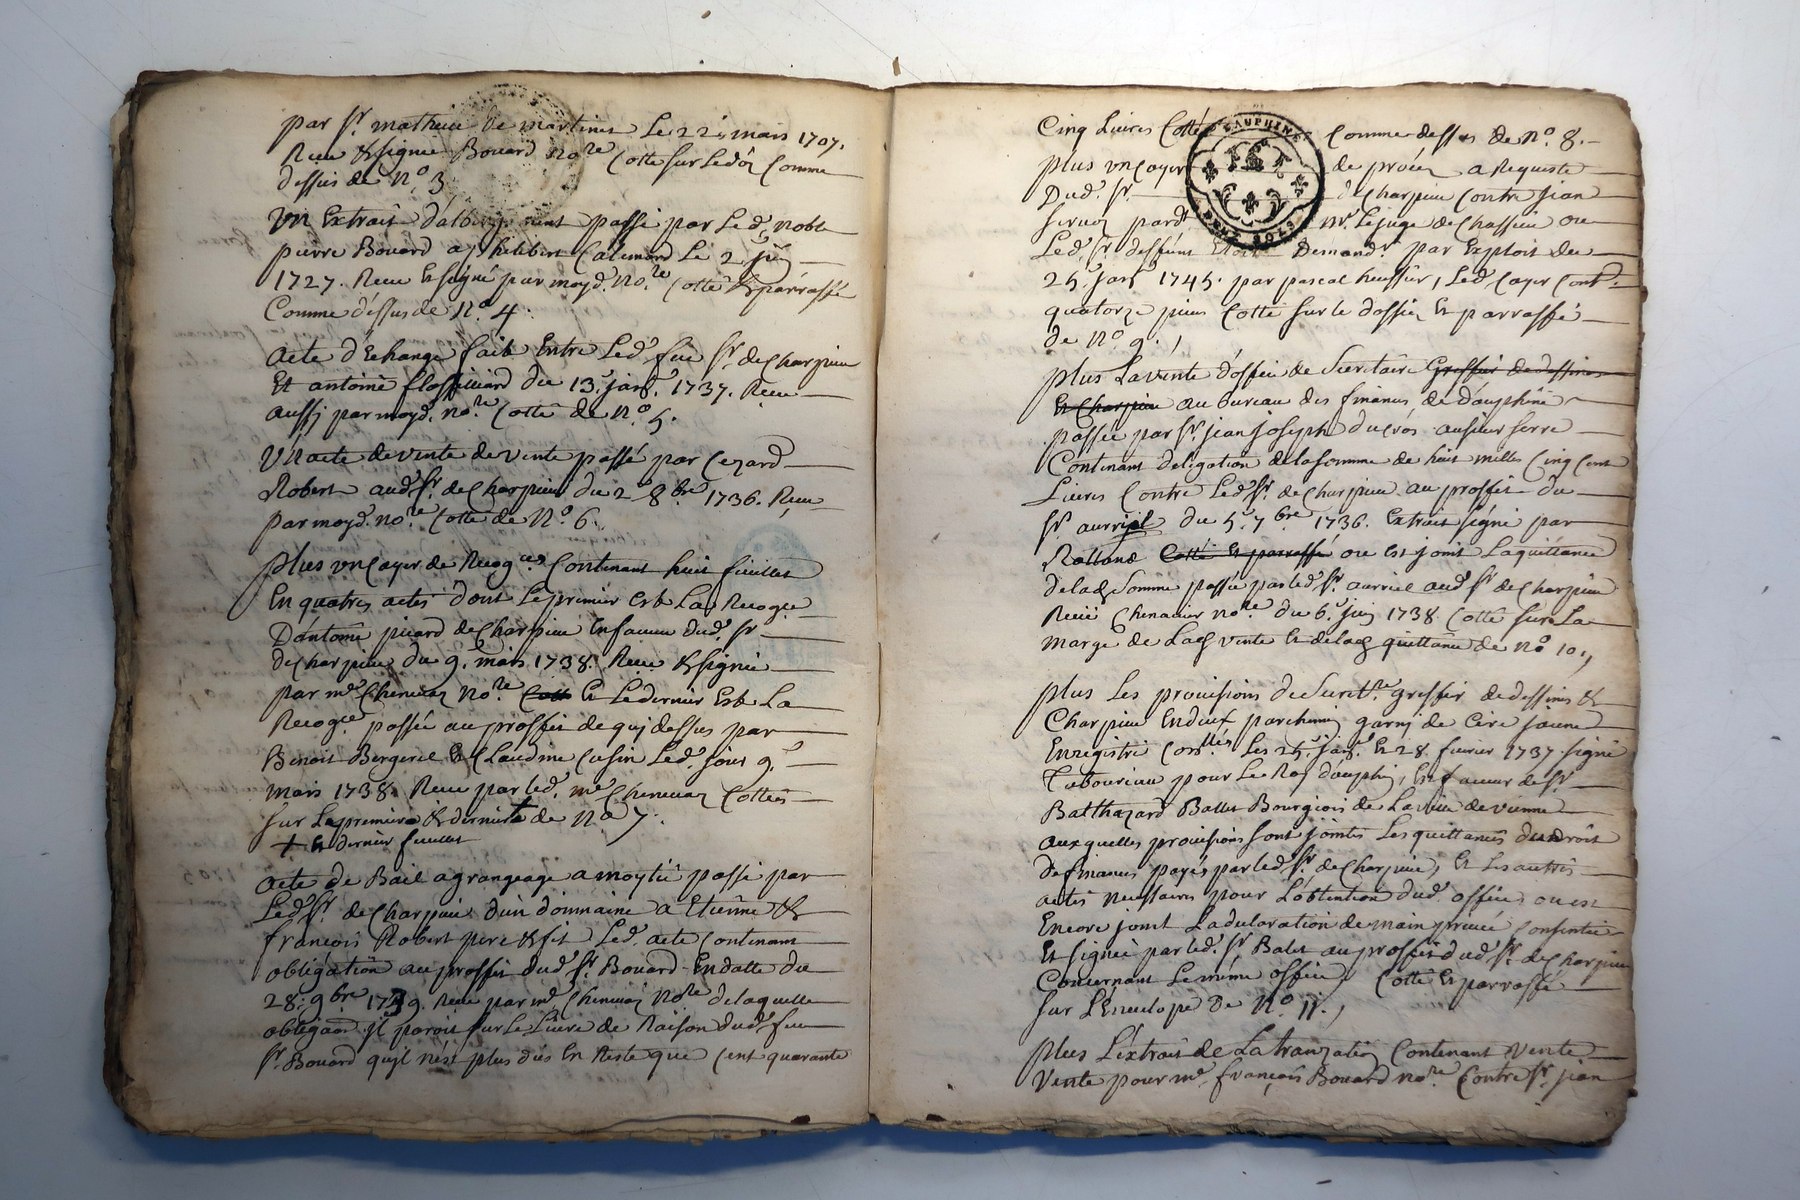 par Sr. mathieu de martines Le 22e. mars 1707.
Receu & signée Bouard No.re Cotté sur Ledos Comme
dessus de No. 3
Un Extrait d'albergement passé par Led. noble
pierre Bouard a philibert Calemard Le 2 juin
1727. Receu Et signé par moyd. No.re Cotté & parraffé
Comme dessus de No. 4.
acte d'Echange fait Entre Led. feu Sr. de Charpieu
Et antoine du 13e. janr. 1737. Receu
aussy par moyd. no.re Cotté de No. 5.
Un acte de vente de vente passé par Cezard
Robert aud. Sr. de Charpieu du 2 8bre. 1736. Receu
par moyd. no.re Cotté de No. 6.
plus un Cayer de Recog.ces Contenant huit feuillet
En quatres actes dont Le premier Est La Recog.ce
D'antoine picard de Charpieu En faveur dud. Sr.
de Charpieu du 9e. mars 1738. Receu & signée
par me. Chenevaz No.re Cotté Et Le dernier Est La
Recog.ce passée au proffit de quj dessus par
Benoit Bergeret Et Claudine Cusin Led. jour 9e.
mars 1738. Receu par led. me. Chenevaz Cottées
sur La premiere & derniere + de No 7.
+ Et dernier feuillet
acte de Bail a grangeage a moytié passé par
Led. Sr. de Charpieu d'un dommaine a Etienne &
françois Robert pere & fils Led. acte Contenant
obligation au proffit dud. Sr. Bouard En datte du
28e. 9bre 1739. Receu par me. Chenevaz No.re de laquelle
obligaon. jl paroit sur Le Livre de Raison dud. feu
Sr. Bouard qu'jl n'est plus dus En Reste que Cent quarante
Cinq Livres Cotté Comme dessus de No. 8.
plus un Cayer de procés a Requeste
Dud. Sr. de Charpieu Contre jean
pard. mr. Le juge de Chassieu ou
Led. Sr. deffunt Etoit Demandr. par Exploit du
25e. janr. 1745. par pascal huissier, Led. Cayer Contt.
quatorze pieces Cotté sur le dossier Et parraffé
de No. 9.
plus La vente d'office de Secretaire Greffier de dessines
Et Charpieu au bureau des finances de dauphiné
passée par Sr. jean joseph ducros au sieur serre
Contenant delegation de la somme de huit milles Cinq Cent
Livres Contre Led. Sr. de Charpieu au proffit du
Sr. aurriel du 5e. 7bre 1736. Extrait signé par
Rolland Cotté Et parraffé ou Est joint La quittance
de lad. somme passée par led. Sr. aurriel aud. Sr. de Charpieu
Receü Chenavier no.re du 6e. juin 1738 Cotté sur La
marge de Lad. vente Et de lad. quittance de No 10.
plus Les provisions de Secret.re greffier de dessines &
Charpieu En deux parchemin garnj de Cire jaune
Enregistré Les 25e. janr. Et 28. fevrier 1737 signé
Taboureau pour Le Roy dauphin, En faveur de Sr.
Balthazard Ballet Bourgeois de La ville de vienne
auxquelles provisions sont jointes Les quittances du droit
de finances payés par led. Sr. de Charpieu, Et Les autres
actes necessaires pour L'obtention dud. office ou est
Encore joint La declaration de main privée Consentie
Et signée par led. Sr. Balet au proffit dud. Sr. de Charpieu
Concernant Le même office, Cotté Et parraffé
Sur L'Envelope De No. 11.
plus L'extrait de La tranzation Contenant vente
Vente pour me. françois Bouard no.re Contre Sr. jean
DAUPHINÉ
DEUX SOLS